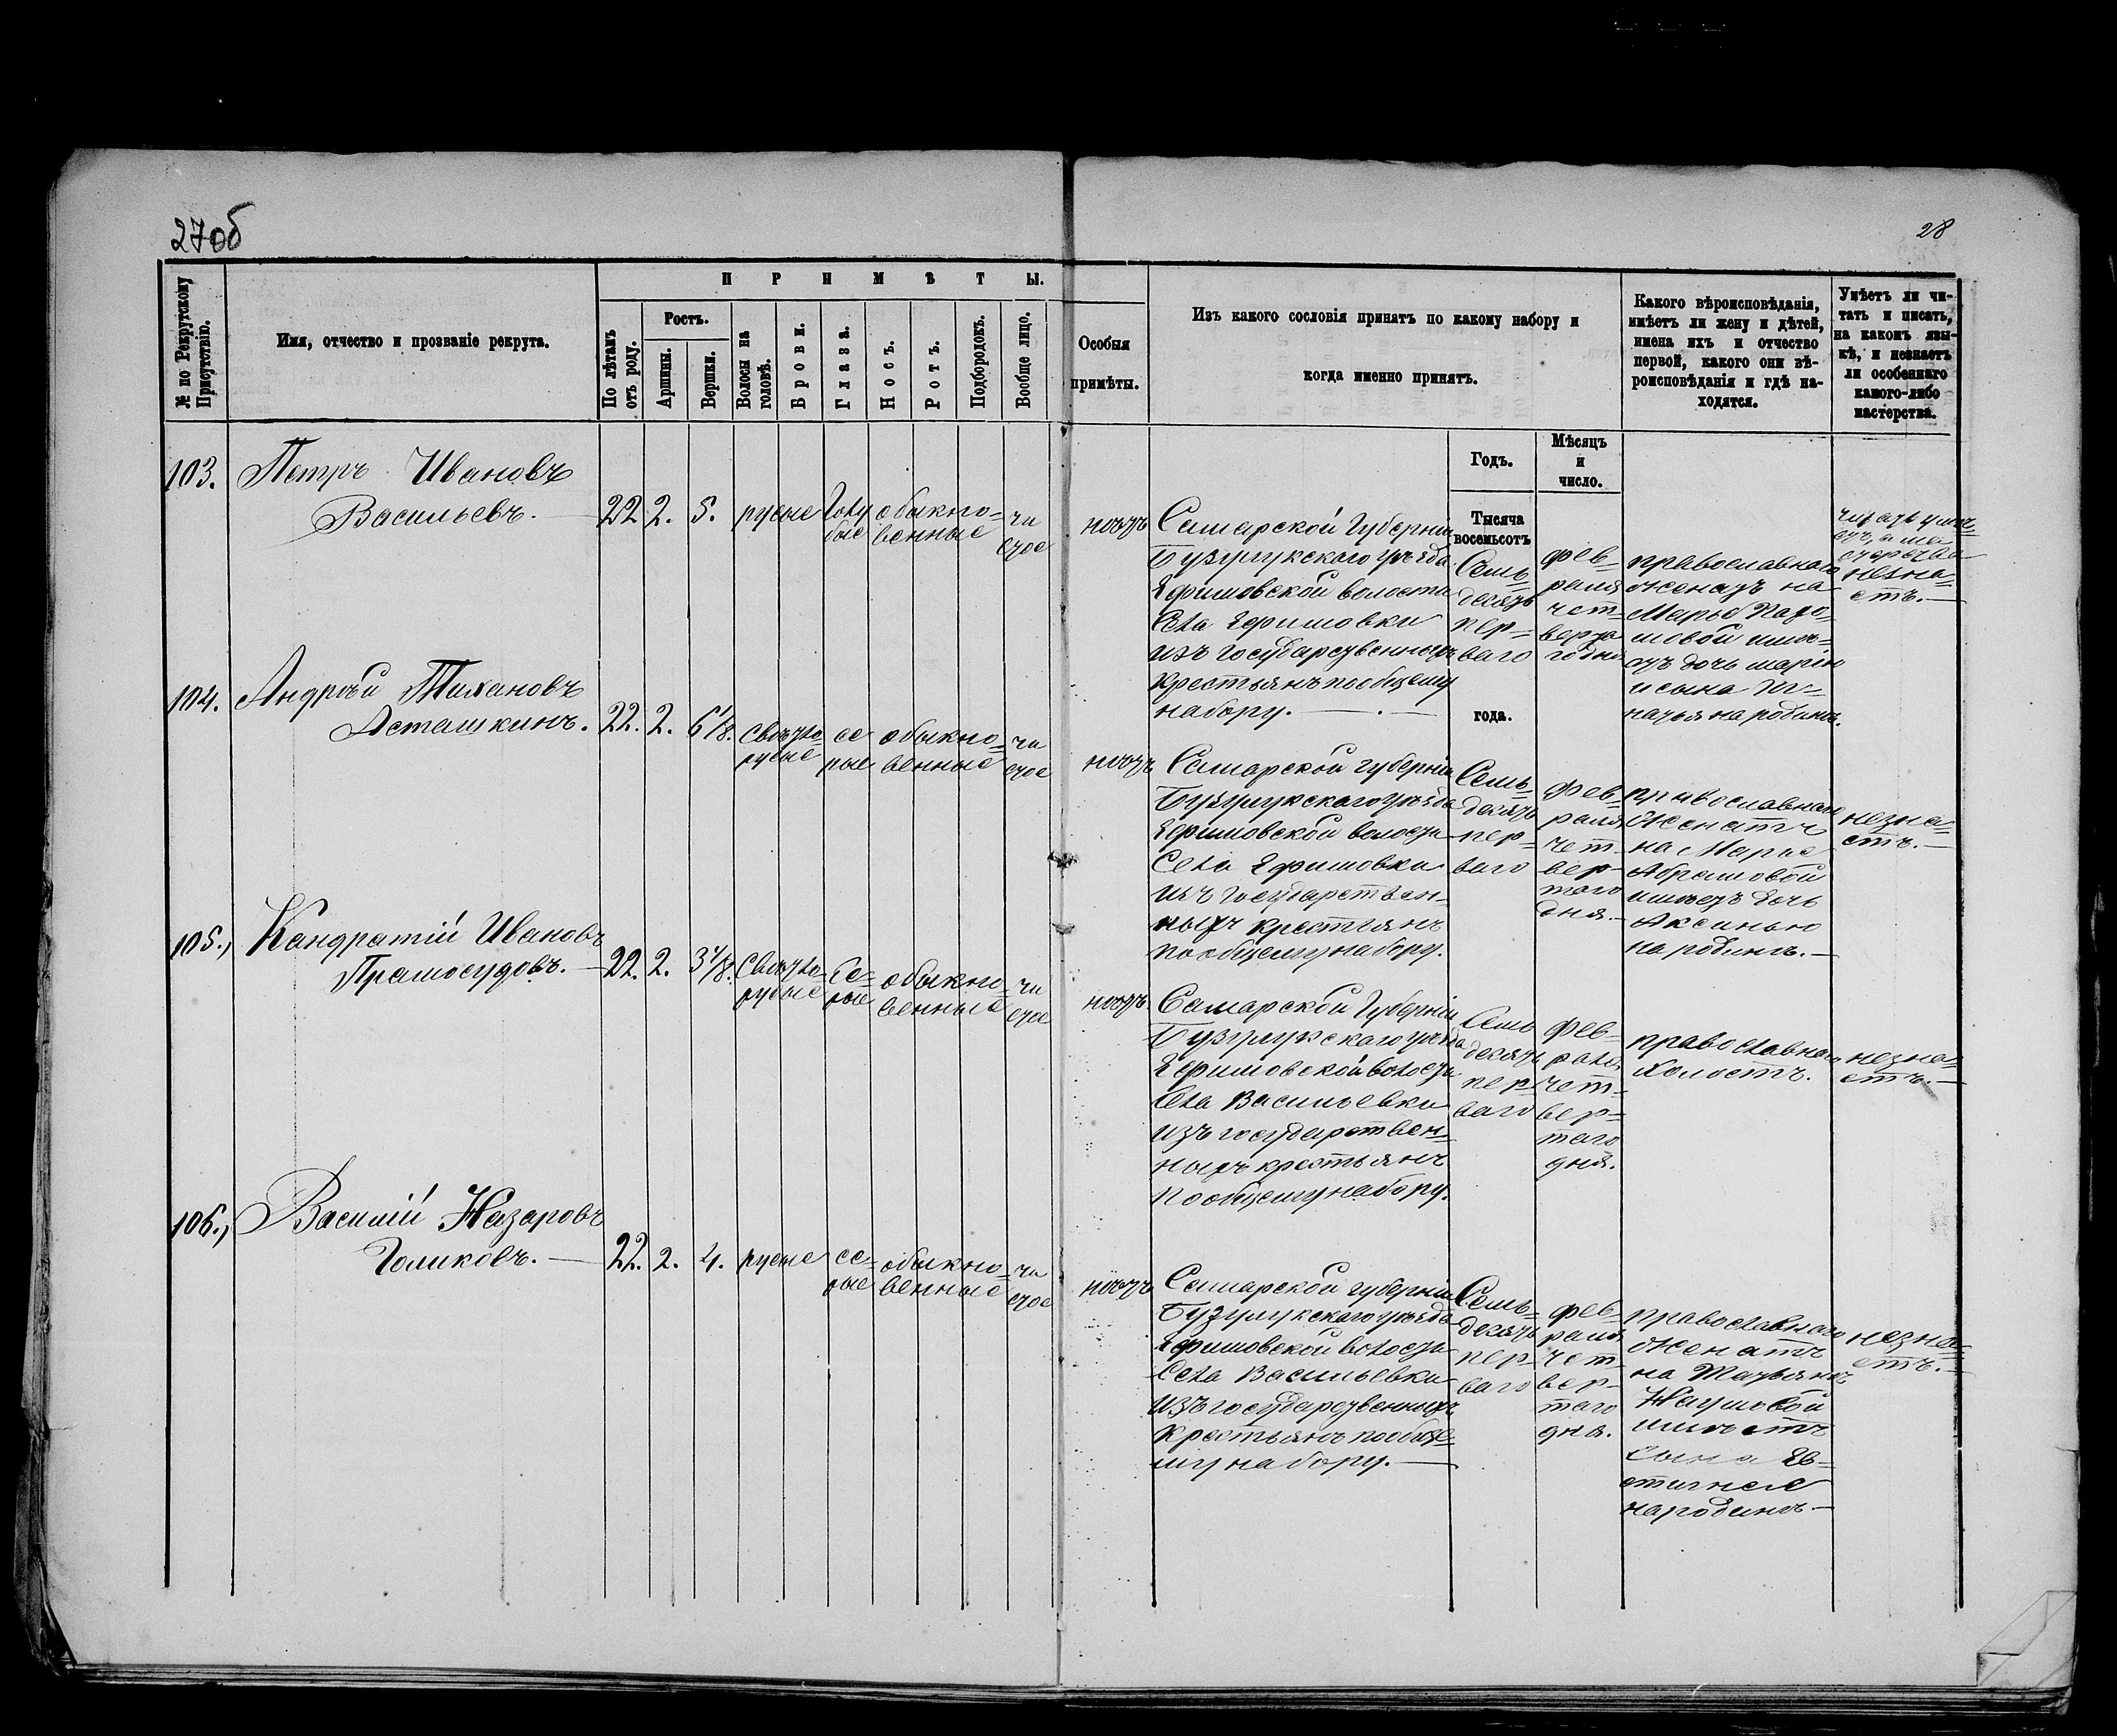 27об
28
№ по Рекрутскому Присутствію.
Имя, отчество и прозваніе рекрута.
ПРИМѢТЫ.
По лѣтамъ отъ роду.
Ростъ.
Аршины.
Вершки.
Волосы на головѣ.
Брови.
Глаза.
Носъ.
Ротъ.
Подбородокъ.
Вообще лицо.
Особыя
примѣты.
Изъ какого сословія принятъ по какому набору и
когда именно принятъ.
Какого вѣроисповѣданія,
имѣетъ ли жену и дѣтей,
имена ихъ и отчество
первой, какого они вѣ-
роисповѣданія и гдѣ на-
ходятся.
Умѣетъ ли чи-
тать и писать,
на какомъ язы-
кѣ, и незнаетъ
ли особеннаго
какого-либо
мастерства.
Годъ.
Мѣсяцъ
и
число.
Тысяча
восемьсотъ
года.
103. Петръ Ивановъ
Васильевъ.
22 2. 5. русые
Голу
бые
обыкно-
венные
чи
стое
нѣтъ
Самарской Губерніи
Бузулукскаго уѣзда
Ефимовской волости
Села Ефимовки
изъ государственныхъ
крестьянъ пообщему
набору.
Семь-
десятъ
пер-
ваго
фев-
раля
чет-
верта
го дня
православнаго
женатъ на
Марьѣ
мовой имѣ-
етъ дочь марію
и сына Иг-
натья на родинѣ.
читать умѣ-
етъ, а ма
стерства
незна-
етъ.
104. Андрѣй Тихановъ
Асташкинъ.
22. 2. 6 1/8.
Свѣтло-
русые
се
рые
обыкно-
венные
чи
стое
нѣтъ
Самарской губерніи
Бузулукскаго уѣзда
Ефимовской волости
Села Ефимовки
изъ Государствен-
ныхъ крестьянъ
по общему набору.
Семь-
десятъ
пер-
ваго
Фев-
раля
чет-
вер-
таго
дня.
православнаго
женатъ
на Марье
Абрамовой
имѣетъ дочь
Аксинью
на родинѣ.
незна-
етъ.
105., Кандратій Ивановъ
Прамосудовъ.
22. 2. 3 4/8.
Свѣтло-
русые
Се-
рые
обыкно-
венные
чи
стое
нѣтъ.
Самарской Губерніи
Бузулукскаго уѣзда
Ефимовской волости
Села Васильевки
изъ государствен-
ныхъ крестьянъ
пообщему набору.
Семь
десятъ
пер-
ваго
Фев-
раля
чет-
вер-
таго
дня.
православнаго
Холостъ.
незна-
етъ.
106., Василій Назаровъ
Голиковъ.
22. 2. 4. русые
се-
рые
обыкно-
венные
чи
стое
нѣтъ
Самарской губерніи
Бузулукскаго уѣзда
Ефимовской волости
Села Васильевки
изъ государственныхъ
крестьянъ пообще-
му набору.
Семь-
десятъ
пер-
ваго
фев-
раля
чет-
вер-
таго
дня.
православнаго
женатъ
на Татьянѣ
Наумовой
имѣетъ
сына Ев-
стигнея
народинѣ.
незна-
етъ.